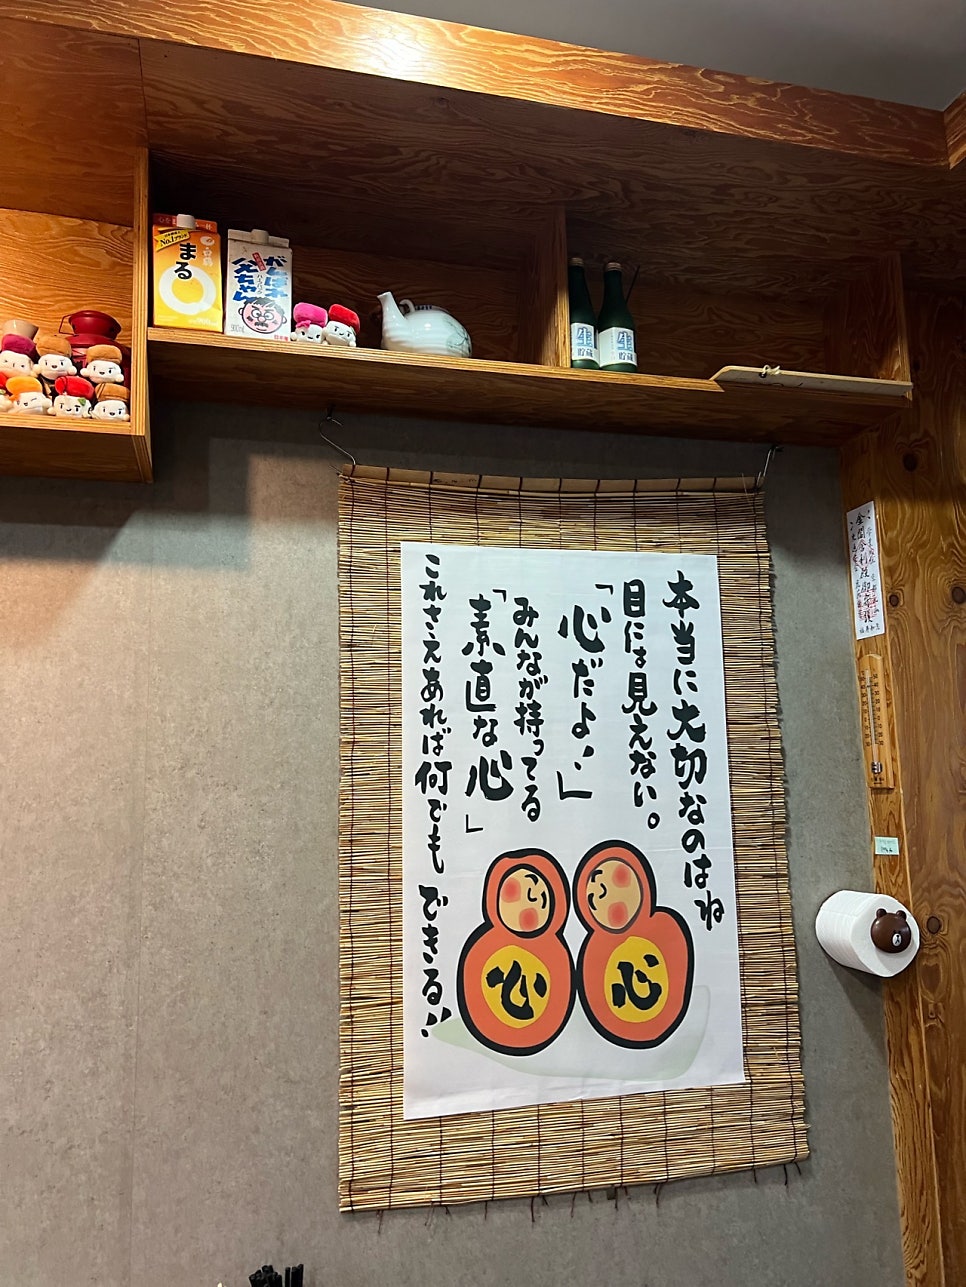 本当に大切なのはね
目には見えない。
「心だよ、」
みんなが持ってる
「素直な心」
これさえあれば何でもできる!!
心
心
No.1
まる
がんばれ
父ちゃん
900ml
生
貯蔵
生
貯蔵